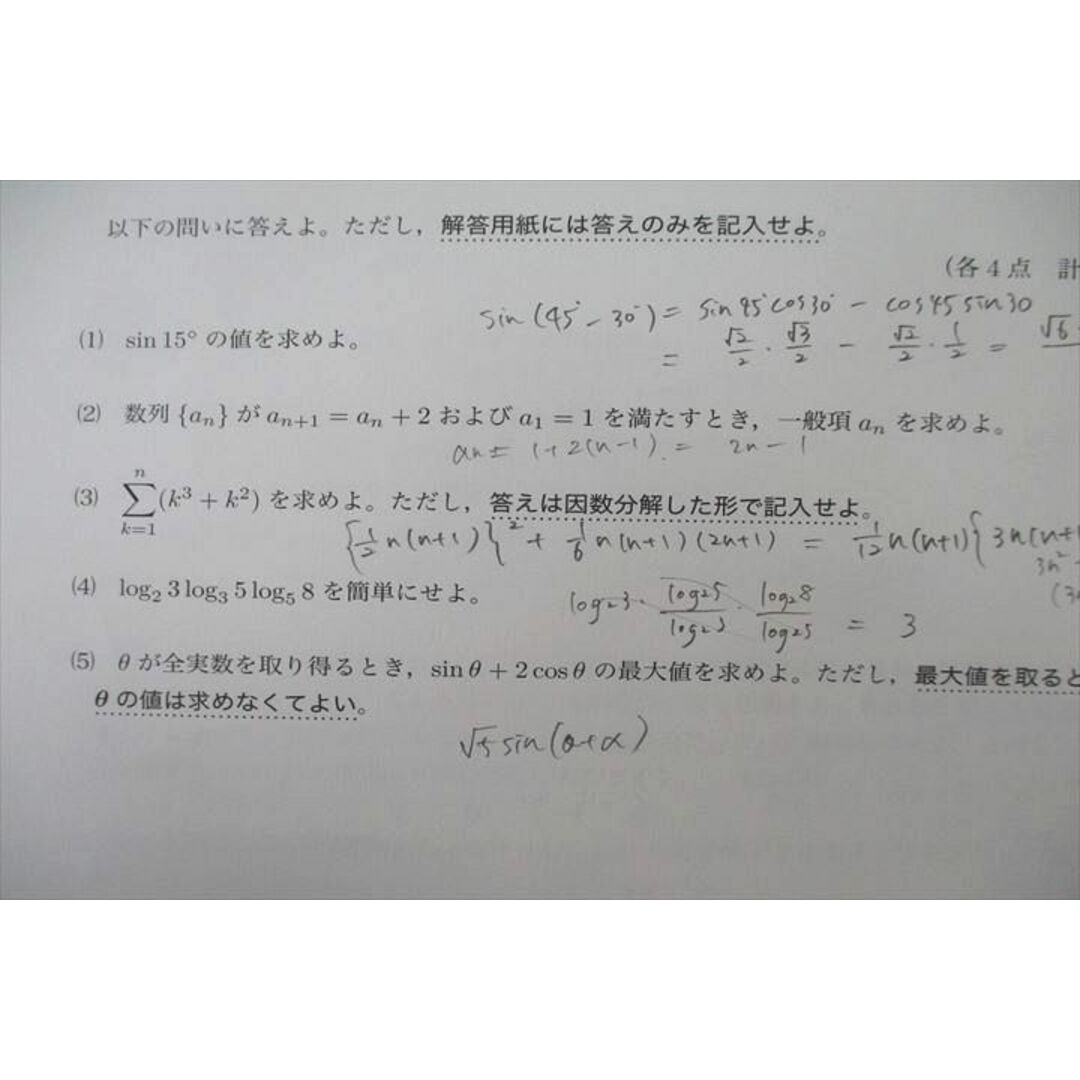 以下の問いに答えよ。ただし，解答用紙には答えのみを記入せよ。
(各4点 計
sin(45°-30°)= sin45°cos30° - cos45 sin30
(1) sin 15° の値を求めよ。
= √2/2・√3/2 - √2/2・1/2 = √6
(2) 数列 {aₙ} が aₙ₊₁ = aₙ + 2 および a₁ = 1 を満たすとき，一般項 aₙ を求めよ。
an = 1+2(n-1) = 2n-1
(3) ∑_{k=1}^{n}(k³ + k²) を求めよ。ただし，答えは因数分解した形で記入せよ。
{1/2 n(n+1)}² + 1/6 n(n+1)(2n+1) = 1/12 n(n+1){3n(n+1
3n²
(3
(4) log₂ 3 log₃ 5 log₅ 8 を簡単にせよ。
log₂3・log₂5/log₂3・log₂8/log₂5 = 3
(5) θ が全実数を取り得るとき，sin θ + 2 cos θ の最大値を求めよ。ただし，最大値を取ると
θ の値は求めなくてよい。
√5 sin(θ+α)